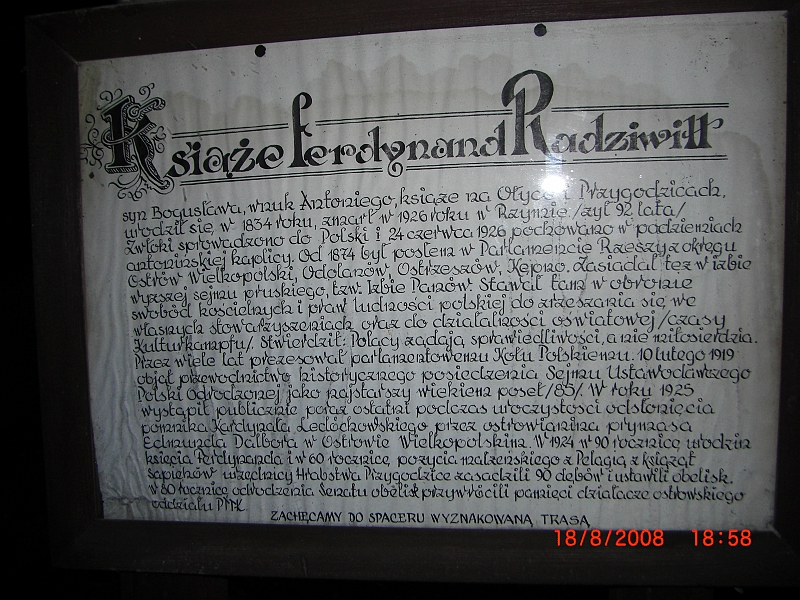 Książe Ferdynand Radziwiłł
syn Bogusława, wnuk Antoniego, książe na Ołyce i Przygodzicach,
urodził się w 1834 roku, zmarł w 1926 roku w Rzymie /żył 92 lata/
Zwłoki sprowadzono do Polski i 24 czerwca 1926 pochowano w podziemiach
antonińskiej kaplicy. Od 1874 był posłem w Parlamencie Rzeszy z okręgu
Ostrów Wielkopolski, Odolanów, Ostrzeszów, Kępno. Zasiadał też w izbie
wyższej sejmu pruskiego, tzw. Izbie Panów. Stawał tam w obronie
swobód kościelnych i praw ludności polskiej do zrzeszania się we
własnych stowarzyszeniach oraz do działalności oświatowej /czasy
Kulturkampfu/. Stwierdził: Polacy żądają sprawiedliwości, a nie miłosierdzia.
Przez wiele lat prezesował parlamentowemu Kołu Polskiemu. 10 lutego 1919
objął przewodnictwo historycznego posiedzenia Sejmu Ustawodawczego
Polski Odrodzonej jako najstarszy wiekiem poseł /85/. W roku 1925
wystąpił publicznie poraz ostatni podczas uroczystości odsłonięcia
pomnika Kardynała Ledóchowskiego przez ostrowianina prymasa
Edmunda Dalbora w Ostrowie Wielkopolskim. W 1924 w 90 rocznicę urodzin
księcia Ferdynanda i w 60 rocznicę pożycia małżeńskiego z Pelagią z książąt
Sapiehów urzędnicy Hrabstwa Przygodzice zasadzili 90 dębów i ustawili obelisk.
w 60 rocznicę odrodzenia Senatu obelisk przywrócili pamięci działacze ostrowskiego
oddziału PTTK.
ZACHĘCAMY DO SPACERU WYZNAKOWANĄ TRASĄ
18/8/2008 18:58